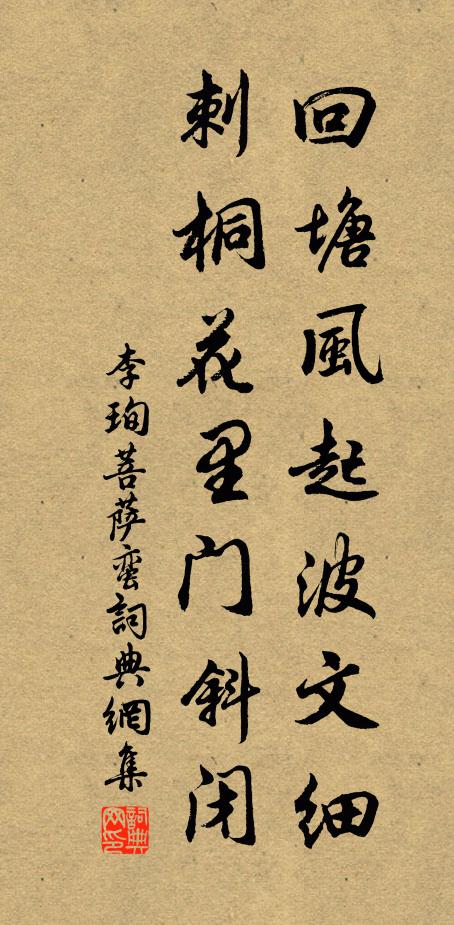 回塘風起波文細
刺桐花里门斜闭
李珣菩萨蛮詞典網集
詞典网印